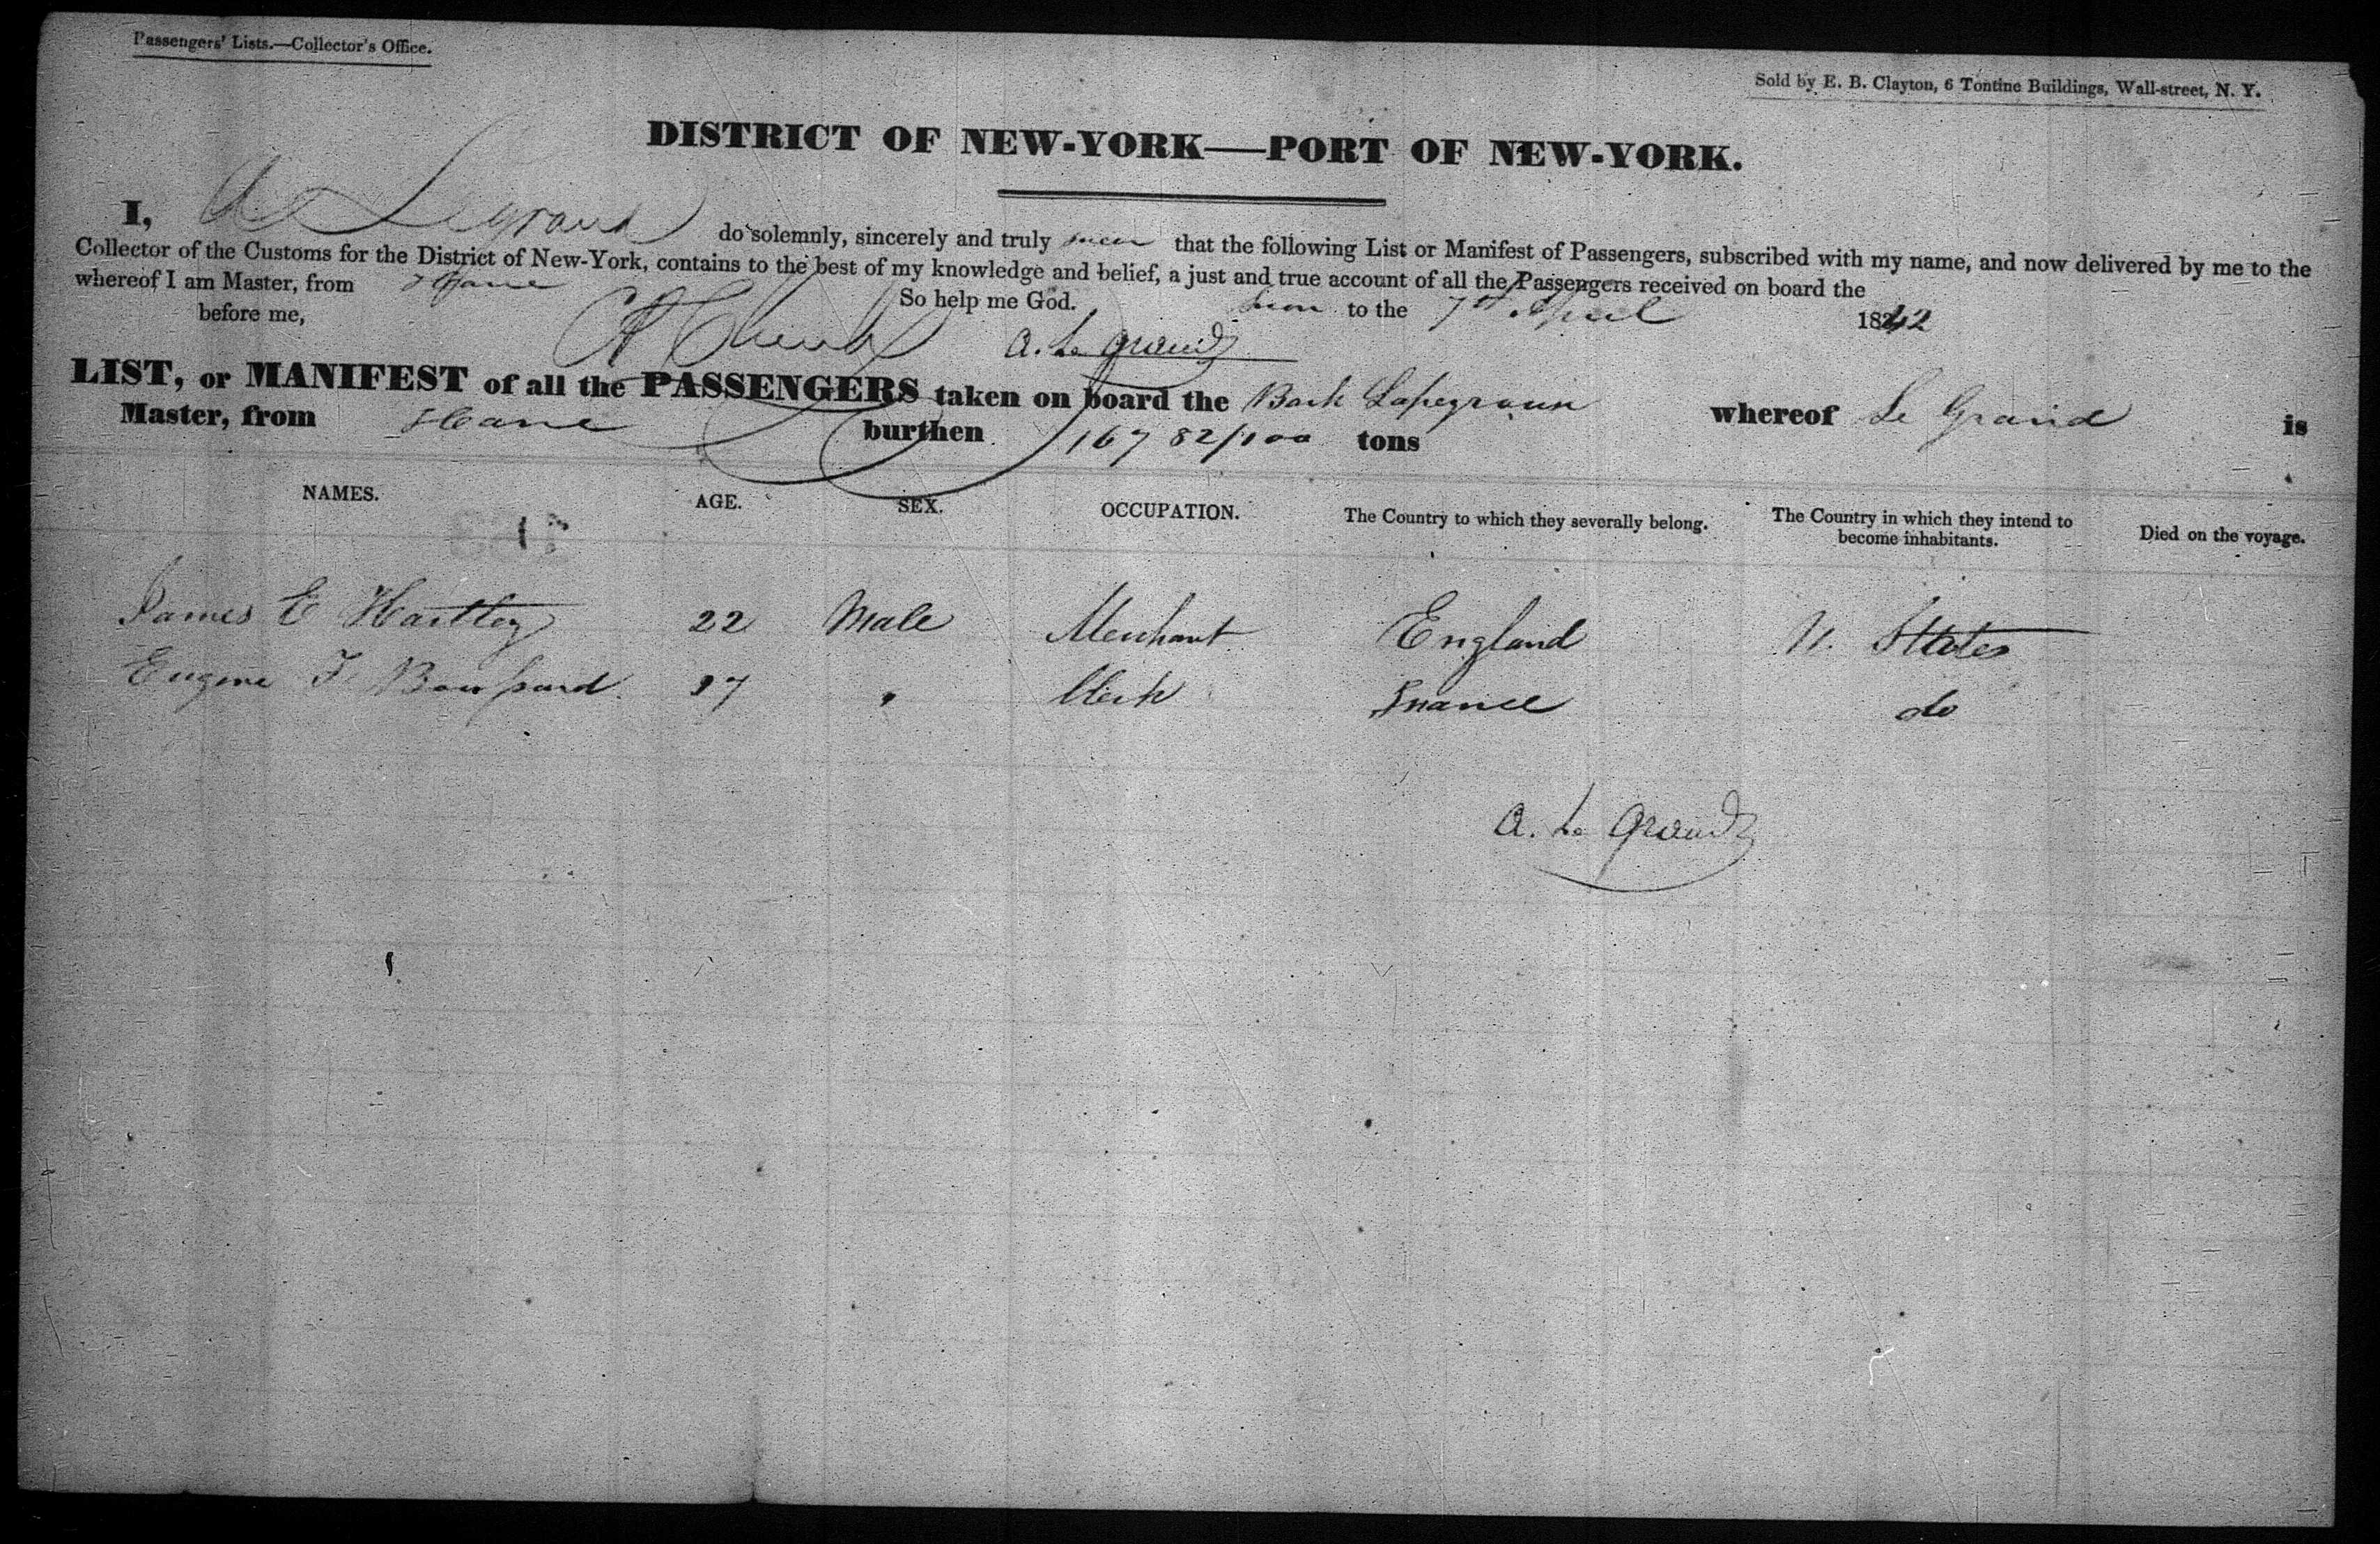 Passengers' Lists.—Collector's Office.
Sold by E. B. Clayton, 6 Tontine Buildings, Wall-street, N. Y.
DISTRICT OF NEW-YORK—PORT OF NEW-YORK.
I, A Legrand do solemnly, sincerely and truly swear that the following List or Manifest of Passengers, subscribed with my name, and now delivered by me to the
Collector of the Customs for the District of New-York, contains to the best of my knowledge and belief, a just and true account of all the Passengers received on board the
whereof I am Master, from Havre
So help me God.
Sworn to the 7th April 1842
before me,
A. Le Grand
LIST, or MANIFEST of all the PASSENGERS taken on board the Bark whereof Le Grand is
Master, from Havre burthen 167 82/100 tons
NAMES. AGE. SEX. OCCUPATION. The Country to which they severally belong. The Country in which they intend to become inhabitants. Died on the voyage.
James E Hartley 22 Male Merchant England U. States
Eugene F. 17 " Clerk France do
A. Le Grand